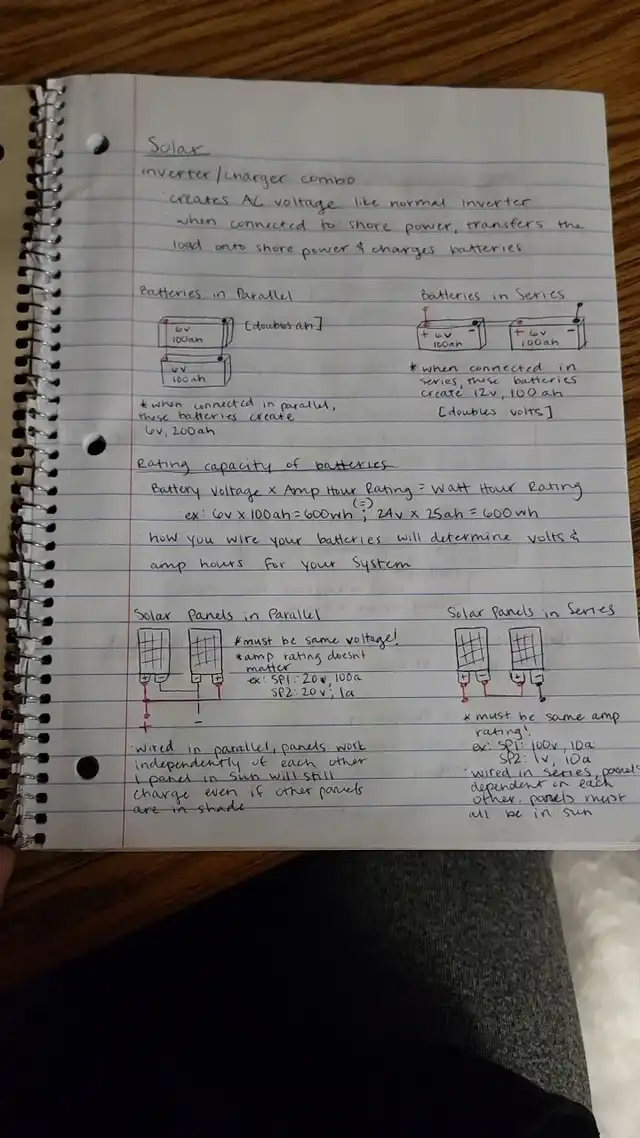 Solar
inverter/charger combo
creates AC voltage like normal inverter
when connected to shore power, transfers the
load onto shore power & charges batteries
Batteries in Parallel
6v
100ah
[doubles ah]
6v
100ah
*when connected in parallel,
these batteries create
6v, 200ah
Batteries in Series
+ 6v -
100ah
+ 6v -
100ah
*when connected in
series, these batteries
create 12v, 100ah
[doubles volts]
Rating capacity of batteries
Battery Voltage x Amp Hour Rating = Watt Hour Rating
(=)
ex: 6v x 100ah = 600wh ; 24v x 25ah = 600wh
how you wire your batteries will determine volts &
amp hours for your system
Solar Panels in Parallel
+ - - +
+ -
*must be same voltage!
*amp rating doesnt
matter
ex: SP1: 20v, 100a
SP2: 20v, 1a
wired in parallel, panels work
independently of each other
1 panel in sun will still
charge even if other panels
are in shade
Solar Panels in Series
+ - + -
* must be same amp
rating!
ex: SP1: 100v, 10a
SP2: 1v, 10a
wired in series, panels
dependent on each
other. panels must
all be in sun